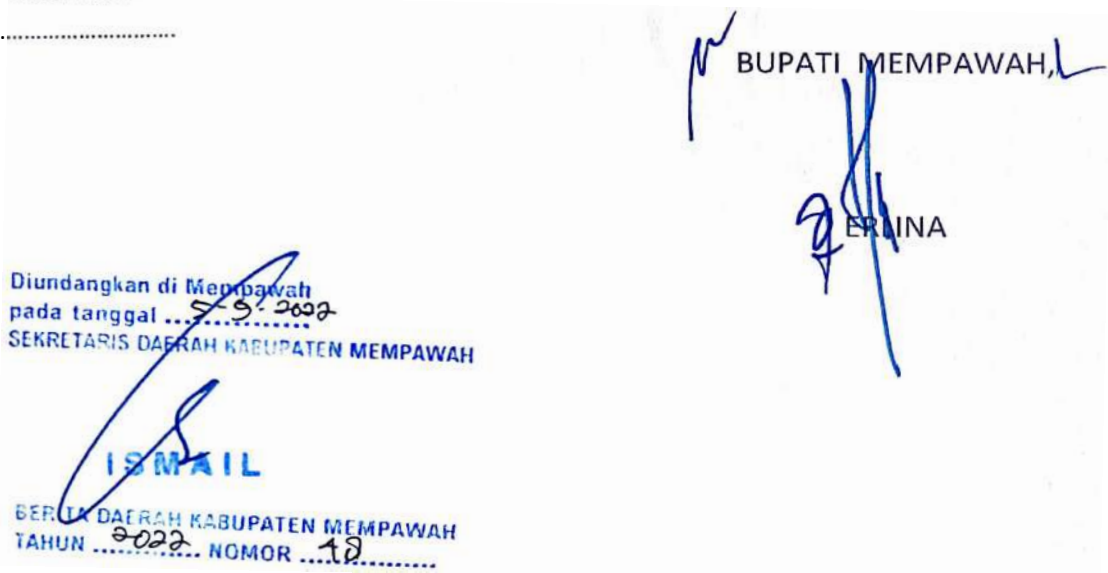 BUPATI MEMPAWAH,
ERLINA
Diundangkan di Mempawah
pada tanggal 5-9-2022
SEKRETARIS DAERAH KABUPATEN MEMPAWAH
ISMAIL
BERITA DAERAH KABUPATEN MEMPAWAH
TAHUN 2022 NOMOR